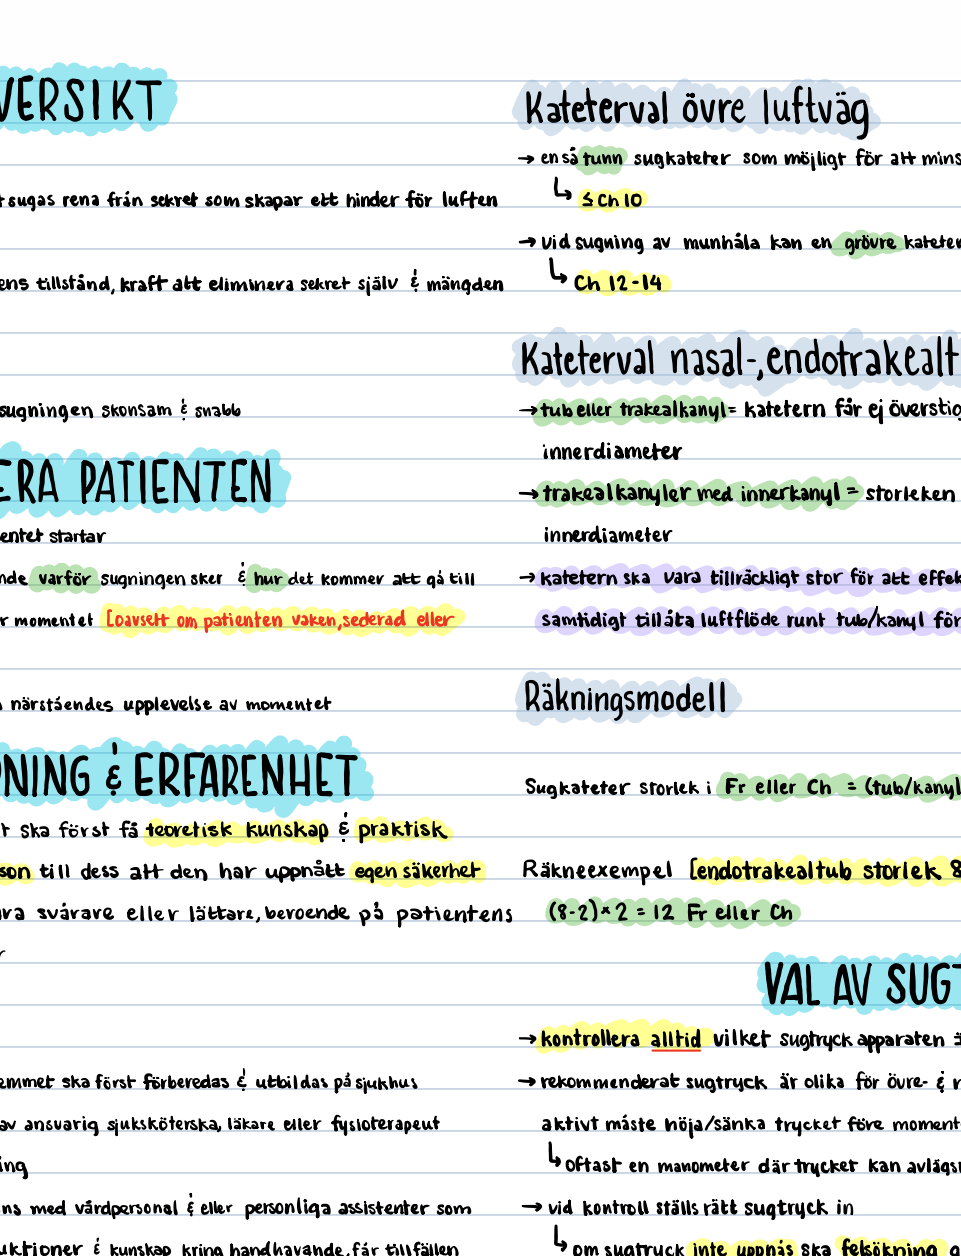 VERSIKT
sugas rena från sekret som skapar ett hinder för luften
ens tillstånd, kraft att eliminera sekret själv & mängden
sugningen skonsam & snabb
ERA PATIENTEN
entet startar
nde varför sugningen sker & hur det kommer att gå till
r momentet [oavsett om patienten vaken, sederad eller
närståendes upplevelse av momentet
NING & ERFARENHET
t ska först få teoretisk kunskap & praktisk
son till dess att den har uppnått egen säkerhet
ra svårare eller lättare, beroende på patientens
r
emmet ska först förberedas & utbildas på sjukhus
av ansvarig sjuksköterska, läkare eller fysioterapeut
ing
ns med vårdpersonal & eller personliga assistenter som
uktioner & kunskap kring handhavande, får tillfällen
Kateterval övre luftväg
→ en så tunn sugkateter som möjligt för att mins
↳ ≤ Ch 10
→ vid sugning av munhåla kan en grövre kateter
↳ Ch 12-14
Kateterval nasal-, endotrakealt
→ tub eller trakealkanyl = katetern får ej överstig
innerdiameter
→ trakealkanyler med innerkanyl = storleken
innerdiameter
→ katetern ska vara tillräckligt stor för att effek
samtidigt tillåta luftflöde runt tub/kanyl för
Räkningsmodell
Sugkateter storlek i Fr eller Ch = (tub/kanyl
Räkneexempel [endotrakealtub storlek 8
(8-2)×2 = 12 Fr eller Ch
VAL AV SUGT
→ kontrollera alltid vilket sugtryck apparaten
→ rekommenderat sugtryck är olika för övre- & n
aktivt måste höja/sänka trycket före moment
↳ oftast en manometer där trycket kan avläs
→ vid kontroll ställs rätt sugtryck in
↳ om sugtryck inte uppnås ska felsökning g